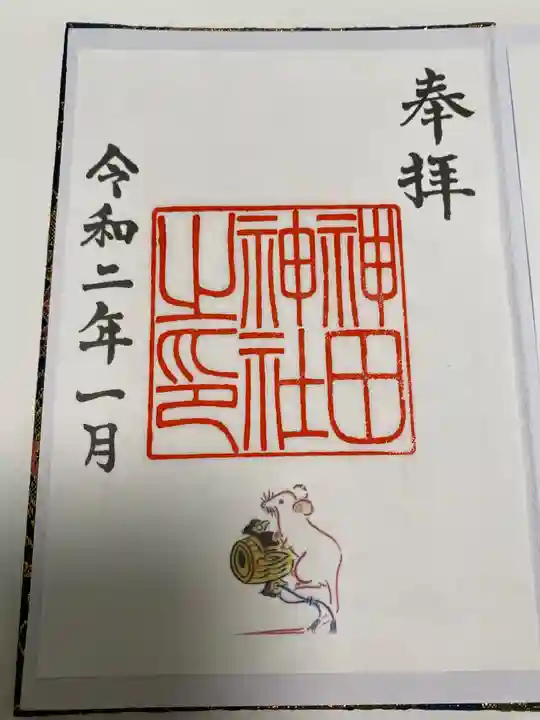 奉拝
神田
神社
之印
令和二年一月